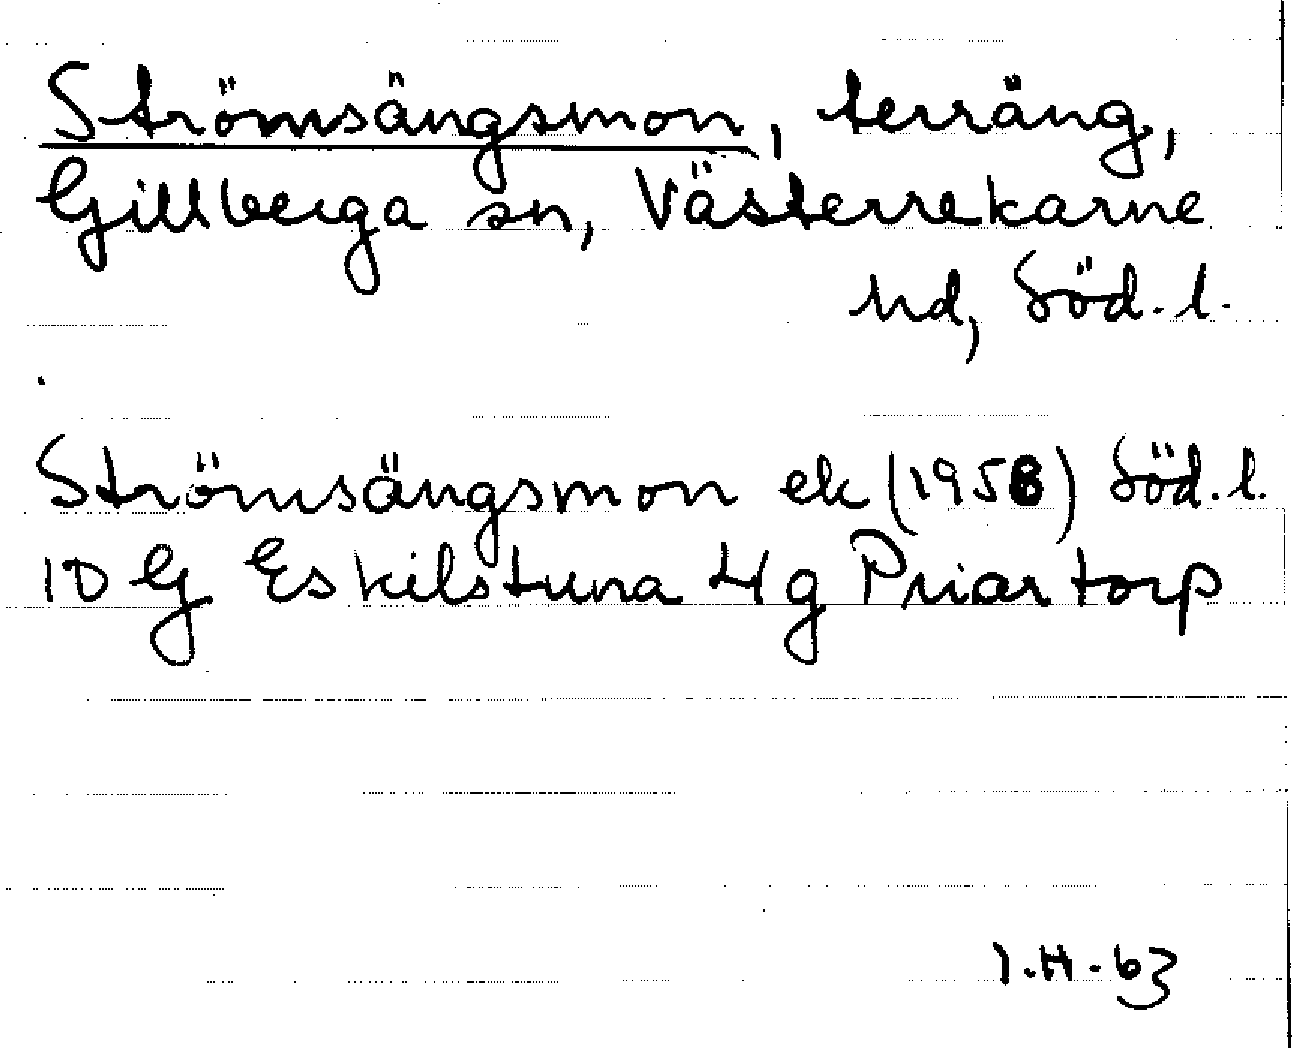 Strömsängsmon, terräng,
Gillberga sn, Västerrekarne
hd, Söd. l.
Strömsängsmon ek (1958) Söd. l.
10 G Eskilstuna 4 g Priartorp
I.H-63